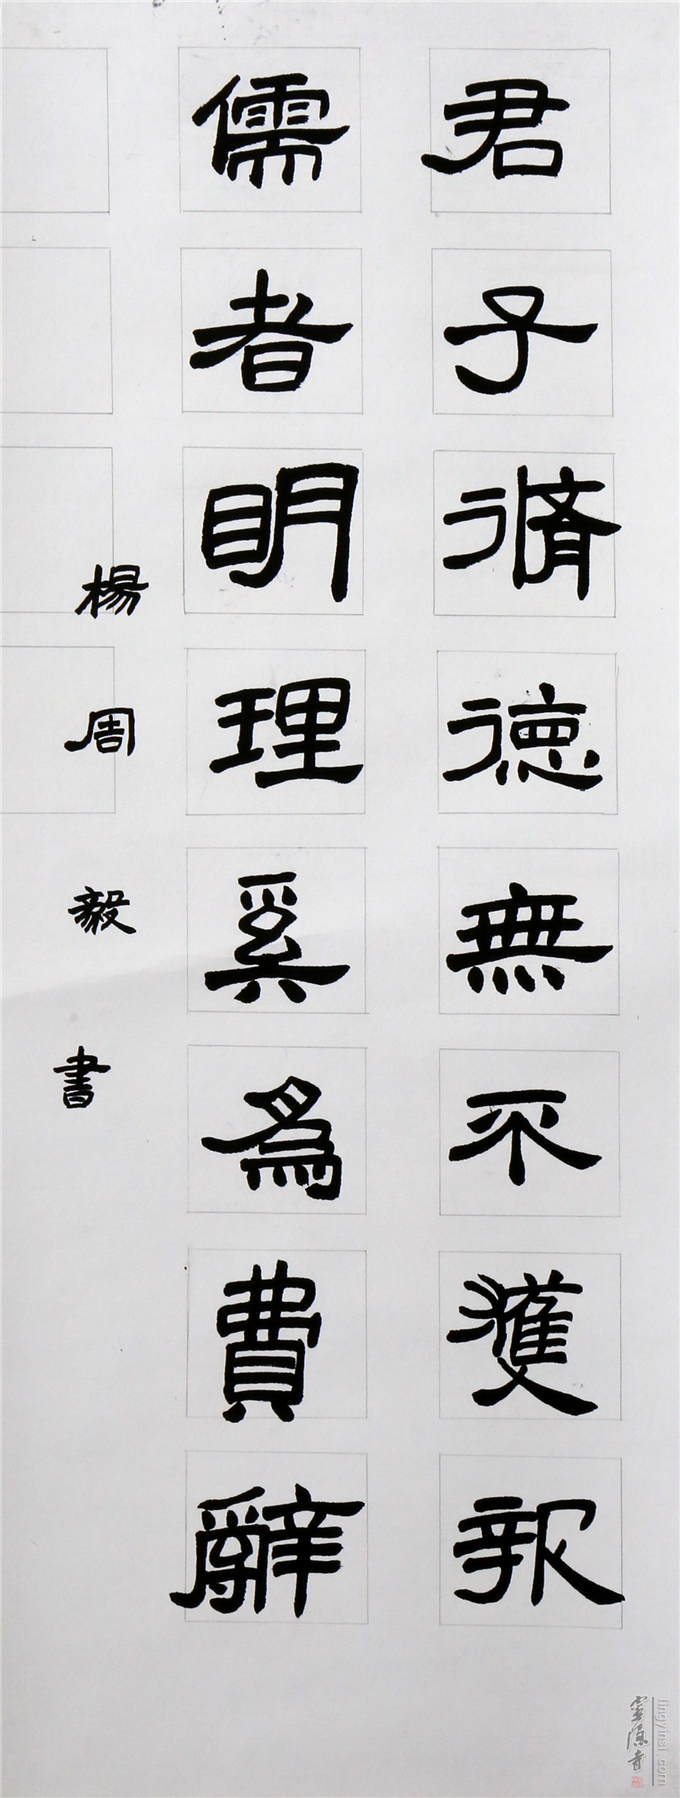 君子脩德無不獲報
儒者明理奚爲費辭
楊周毅書
靈隱寺
lingyinsi.com